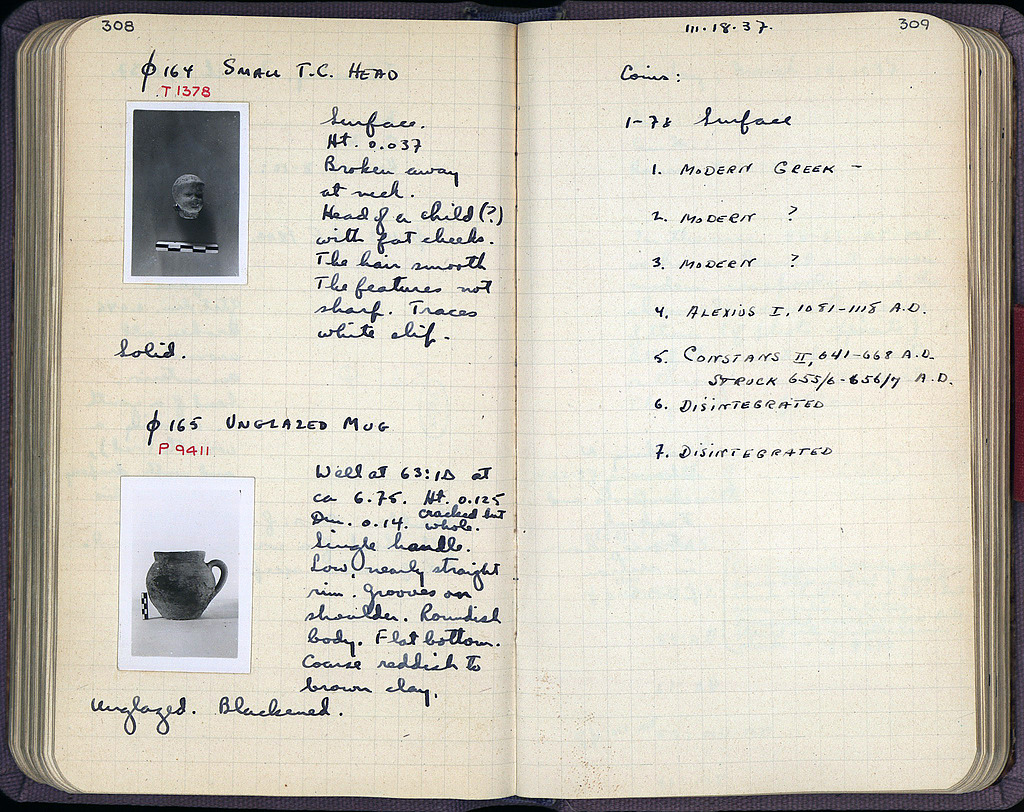 308
φ 164 SMALL T.C. HEAD
T 1378
Surface.
Ht. 0.037
Broken away
at neck.
Head of a child (?)
with fat cheeks.
The hair smooth
The features not
sharp. Traces
white slip.
Solid.
φ 165 UNGLAZED MUG
P 9411
Well at 63:ΙΔ at
ca 6.75. Ht. 0.125
Dm. 0.14. cracked but whole.
Single handle.
Low, nearly straight
rim. Grooves on
shoulder. Roundish
body. Flat bottom.
Coarse reddish to
brown clay.
Unglazed. Blackened.
III.18.37.
309
Coins:
1-7 Surface
1. MODERN GREEK –
2. MODERN ?
3. MODERN ?
4. ALEXIUS I, 1081-1118 A.D.
5. CONSTANS II, 641-668 A.D.
STRUCK 655/6-656/7 A.D.
6. DISINTEGRATED
7. DISINTEGRATED